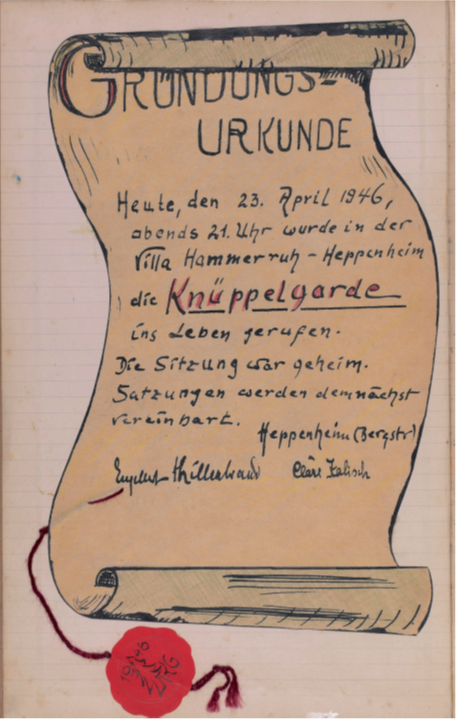 GRÜNDUNGS-
URKUNDE
Heute, den 23. April 1946,
abends 21. Uhr wurde in der
Villa Hammerruh - Heppenheim
die Knüppelgarde
ins Leben gerufen.
Die Sitzung war geheim.
Satzungen werden demnächst
vereinbart.
Heppenheim (Bergstr)
Kalisch